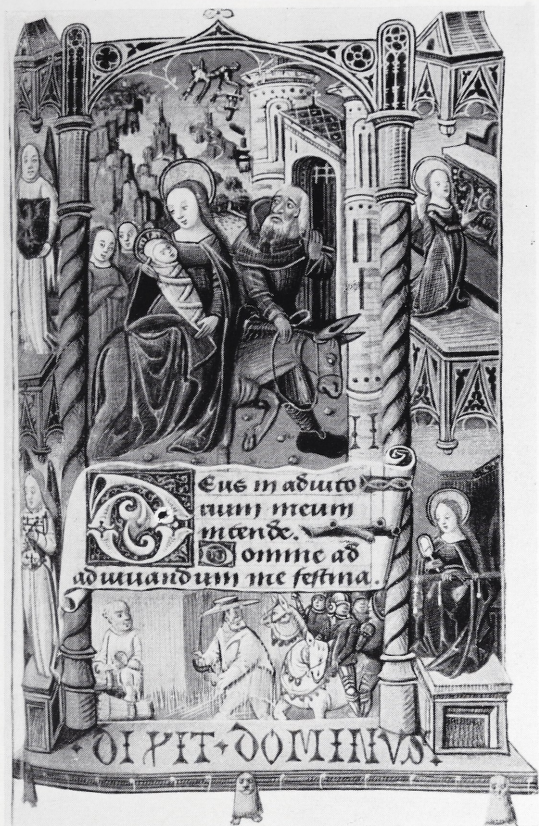 Deus in adiuto
rium meum
intende.
Domine ad
adiuuandum me festina.
DIXIT DOMINUS